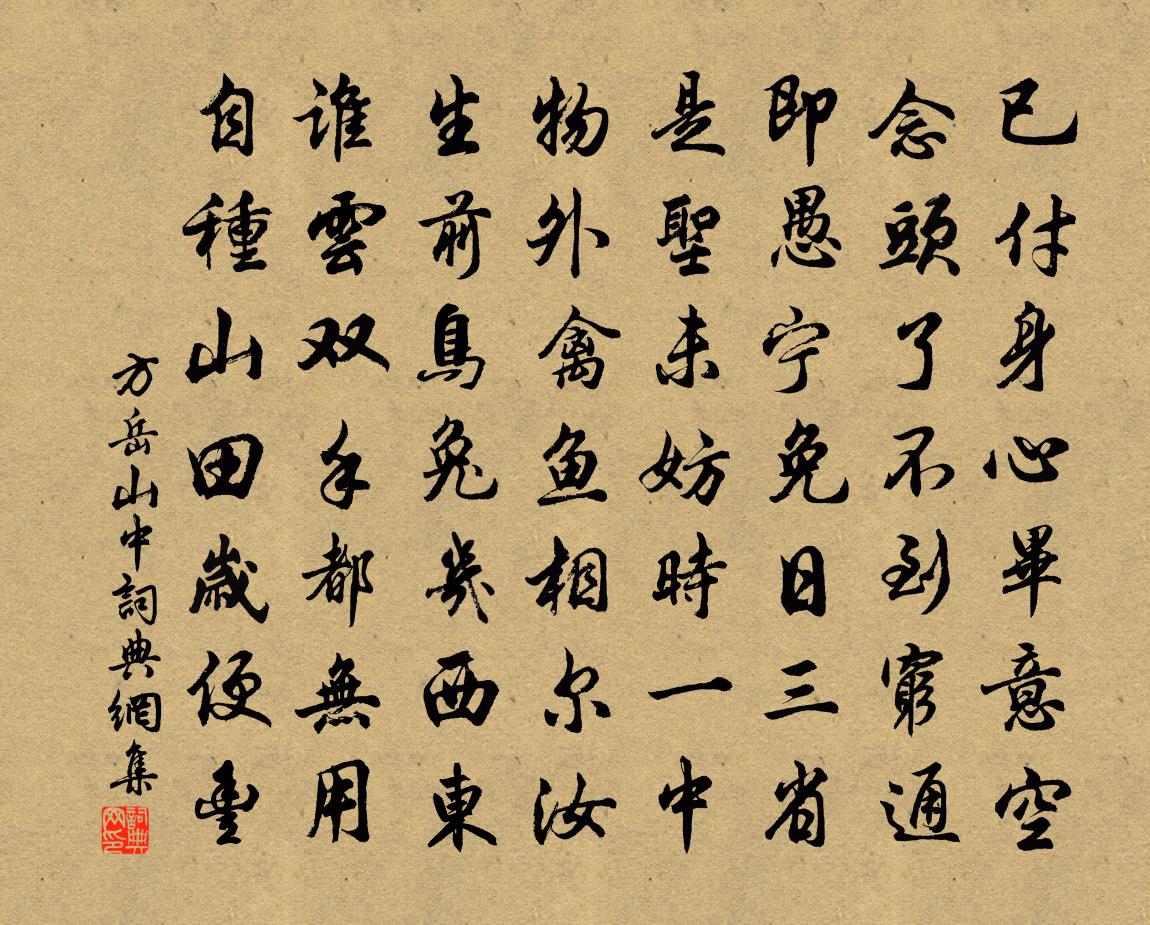 已付身心畢意空
念頭了不到窮通
即愚宁免日三省
是聖未妨時一中
物外禽鱼相尔汝
生前烏兔幾西東
誰雲双手都無用
自種山田歲便豐
方岳山中詞典網集
詞典网印